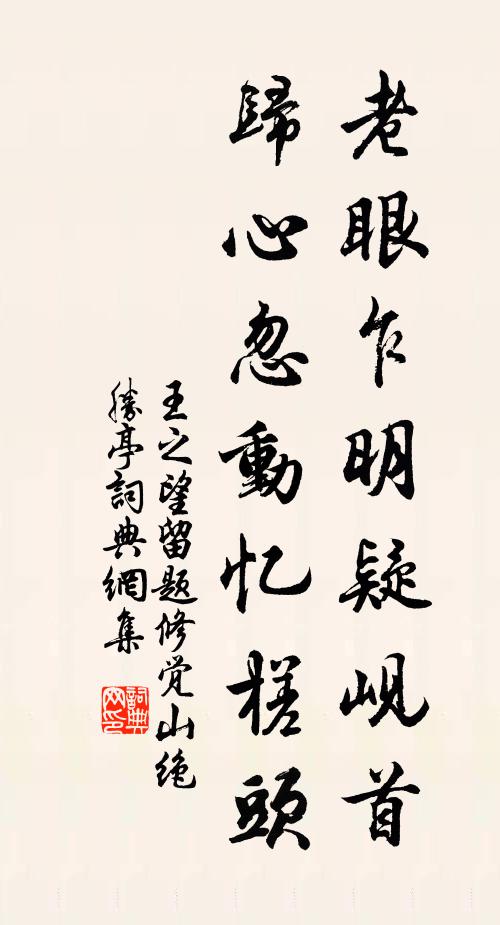 老眼乍明疑峴首
歸心忽動忆槎頭
王之望留題修觉山绝
勝亭詞典網集
詞典网印